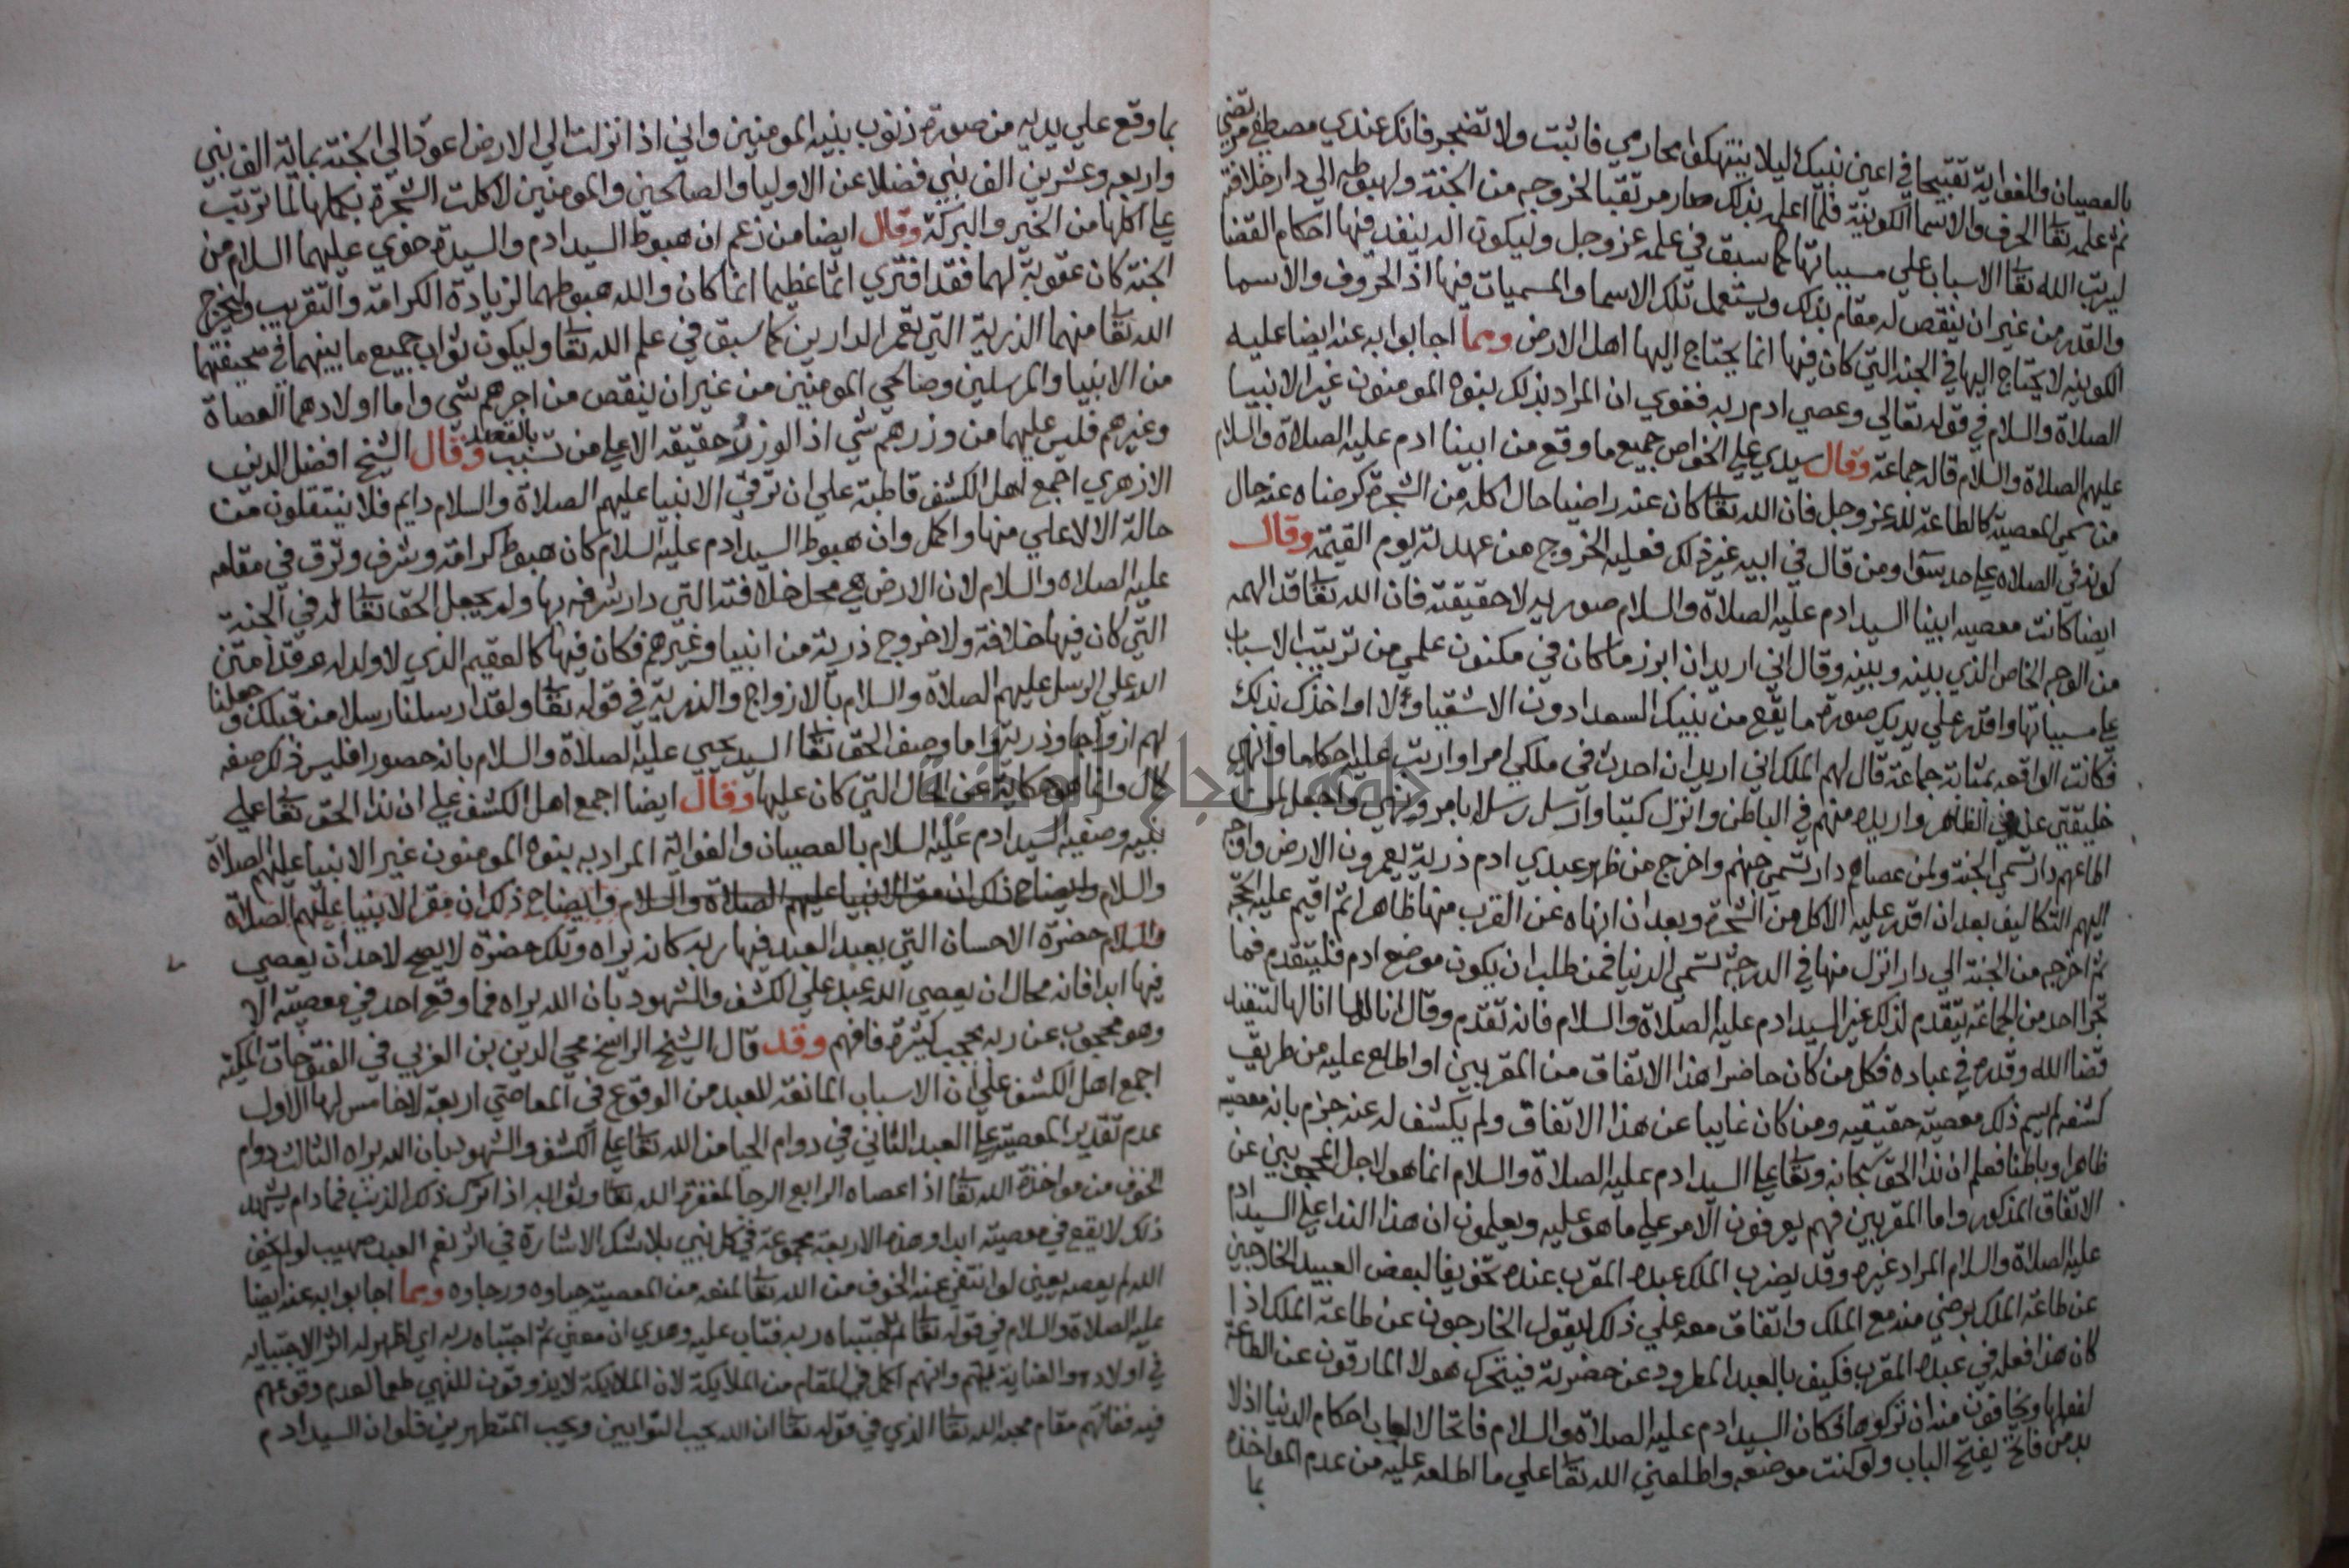 بالعصيان والغواية تقبيحا في اعين نبيك ليلا ينتهكوا محارمي فاثبت ولا تضجر فانك عندي مصطفي مرتضي
ثم علمه تعا الحرف والاسما الكونية فلما اعلم بذلك صار مرتقبا لخروجه من الجنة ولهبوطه الي دار خلافة
ليرتب الله تعا الاسباب علي مسبباتها كما سبق في علمه عز وجل وليكون الله ينفذ فيها احكام القضا
والقدر من غير ان ينقص له مقام بذلك ويستعمل تلك الاسما والمسميات فيها اذ الحروف والاسما
الكونية لا يحتاج اليها في الجنة التي كان فيها انما يحتاج اليها اهل الارض ومما اجابوا به عنه ايضا عليه
الصلاة والسلام في قوله تعالي وعصي ادم ربه فغوي ان المراد بذلك بنوه المومنون غير الانبيا
عليهم الصلاة والسلام قاله جماعة وقال سيدي علي الخواص جميع ما وقع من ابينا ادم عليه الصلاة والسلام
من سمي المعصية كالطاعة لله عز وجل فان الله تعا كان عنه راضيا حال اكله من الشجرة كرضاه عنه حال
كونه في الصلاه علي حد سوا ومن قال في ابيه غير ذلك فعليه الخروج من عهدته يوم القيمة وقال
ايضا كانت معصية ابينا السيد ادم عليه الصلاة والسلام صورية لا حقيقة فان الله تعا قد الهمه
من الوجه الخاص الذي بينه وبينه وقال اني اريد ان ابرز ما كان في مكنون علمي من ترتيب الاسباب
علي مسبباتها واقدر علي يديك صورة ما يقع من بنيك السعدا دون الاشقيا ولا اواخذك بذلك
فكانت الواقعه بمثابة جماعة قال لهم الملك اني اريد ان احدث في ملكي امرا وارتب عليه احكاما وانهي
خليقتي عنه في الظاهر واريده منهم في الباطن وانزل كتبا وارسل رسلا بامر ونهي واجعل لمن
اطاعهم دار تسمي الجنة ولمن عصاهم دار تسمي جهنم واخرج من ظهر عبدي ادم ذرية يعمرون الارض واوجه
اليهم التكاليف بعد ان اقدر عليه الاكل من الشجرة وبعد ان انهاه عن القرب منها ظاهرا ثم اقيم عليه الحجة
ثم اخرجه من الجنة الي دار انزل منها في الدرجة تسمي الدنيا فمن طلب ان يكون موضع ادم فليتقدم فما
تجرا احد من الجماعة يتقدم لذلك غير السيد ادم عليه الصلاة والسلام فانه تقدم وقال انا لها انا لها لتنفيذ
قضا الله وقدره في عباده فكل من كان حاضرا هذا الاتفاق من المقربين او اطلع عليه من طريق
كشفه لم يسم ذلك معصية حقيقيه ومن كان غايبا عن هذا الاتفاق ولم يكشف له عنه جزم بانه معصية
ظاهرا وباطنا فعلم ان ندا الحق سبحانه وتعا علي السيد ادم عليه الصلاة والسلام انما هو لاجل المحجوبين عن
الاتفاق المذكور واما المقربين فهم يعرفون الامر علي ما هو عليه ويعلمون ان هذا الندا علي السيد ادم
عليه الصلاة والسلام المراد غيره وقد يضرب الملك عبده المقرب عنده تخويفا لبعض العبيد الخارجين
عن طاعة الملك برضي منه مع الملك واتفاق معه علي ذلك ليقول الخارجون عن طاعة الملك اذا
كان هذا فعله في عبده المقرب فكيف بالعبد المطرود عن حضرته فيتحرك هولا المارقون عن الطاعة
لفعلها ويخافون منه ان تركوها فكان السيد ادم عليه الصلاة والسلام فاتحا لابواب احكام الدنيا اذ لا
بد من فاتح يفتح الباب ولو كنت موضعه واطلعني الله تعا علي ما اطلعه عليه من عدم المواخذه
بما
بما وقع علي يديه من صورة ذنوب بنيه المومنين واني اذا نزلت الي الارض اعود الي الجنة بماية الف نبي
واربعه وعشرين الف نبي فضلا عن الاوليا والصالحين والمومنين لاكلت الشجرة بكمالها لما ترتب
علي اكلها من الخير والبركة وقال ايضا من زعم ان هبوط السيد ادم والسيدة حوي عليهما السلام من
الجنة كان عقوبة لهما فقد افتري اثما عظيما انما كان والله هبوطهما لزيادة الكرامة والتقريب وليخرج
الله تعا منهما الذرية التي تعمر الدارين كما سبق في علم الله تعا وليكون ثواب جميع ما بينهما في صحيفتهما
من الانبيا والمرسلين وصالحي المومنين من غير ان ينقص من اجرهم شي واما اولادهما العصاة
وغيرهم فليس عليهما من وزرهم شي اذ الوزر حقيقة الا علي من تسبب بالقصد وقال الشيخ افضل الدين
الازهري اجمع اهل الكشف قاطبة علي ان ترقي الانبيا عليهم الصلاة والسلام دايم فلا ينتقلون من
حالة الا لاعلي منها واكمل وان هبوط السيد ادم عليه السلام كان هبوط كرامة وشرف وترق في مقامه
عليه الصلاه والسلام لان الارض هي محل خلافته التي دار شرفه بها ولم يجعل الحق تعا له في الجنة
التي كان فيها خلافة ولا خروج ذرية من انبيا وغيرهم فكان فيها كالعقيم الذي لا ولد له وقد امتن
الله علي الرسل عليهم الصلاة والسلام بالازواج والذرية في قوله تعا ولقد ارسلنا رسلا من قبلك وجعلنا
لهم ازواجا وذرية واما وصف الحق تعا السيد يحيي عليه الصلاة والسلام بانه حصورا فليس ذلك صفه
كمال وانما هو حكاية عن الحال التي كان عليها وقال ايضا اجمع اهل الكشف علي ان ندا الحق تعا علي
نبيه وصفيه السيد ادم عليه السلام بالعصيان والغواية المراد به بنوه المومنون غير الانبيا عليهم الصلاة
والسلام وايضاح ذلك ان مقر الانبيا عليهم الصلاة والسلام وايضاح ذلك ان مقر الانبيا عليهم الصلاة
والسلام حضرة الاحسان التي يعبد العبد فيها ربه كانه يراه وتلك حضرة لا يصح لاحد ان يعصي
فيها ابدا فانه محال ان يعصي الله عبد علي الكشف والشهود بان الله يراه فما وقع احد في معصية الا
وهو محجوب عن ربه بحجب كثيرة فافهم وقد قال الشيخ الراسخ محيي الدين بن العربي في الفتوحات المكية
اجمع اهل الكشف علي ان الاسباب المانعة للعبد من الوقوع في المعاصي اربعة لا خامس لها الاول
عدم تقدير المعصية علي العبد الثاني في دوام الحيا من الله تعا علي الكشف والشهود بان الله يراه الثالث دوام
الخوف من مواخذة الله تعا اذا عصاه الرابع الرجا لمغفرة الله تعا وثوابه اذا ترك ذلك الذنب فمادام يشهد
ذلك لا يقع في معصية ابدا وهذه الاربعة مجموعة في كل نبي بلا شك الاشارة في اثر نعم العبد صهيب لو لم يخف
الله لم يعصه يعني لو انتفي عنه الخوف من الله تعا لمنعه من المعصية حياوه ورجاوه ومما اجابوا به عنه ايضا
عليه الصلاة والسلام في قوله تعا ثم اجتباه ربه فتاب عليه وهدي ان معني ثم اجتباه ربه اي اظهر له اثر الاجتبايه
في اولاده والعناية بهم وانهم اكمل في المقام من الملايكة لان الملايكة لا يذوقون للنهي طعما لعدم وقوعهم
فيه ففاتهم مقام محبة الله تعا الذي في قوله تعا ان الله يحب التوابين ويحب المتطهرين فلو ان السيد ادم